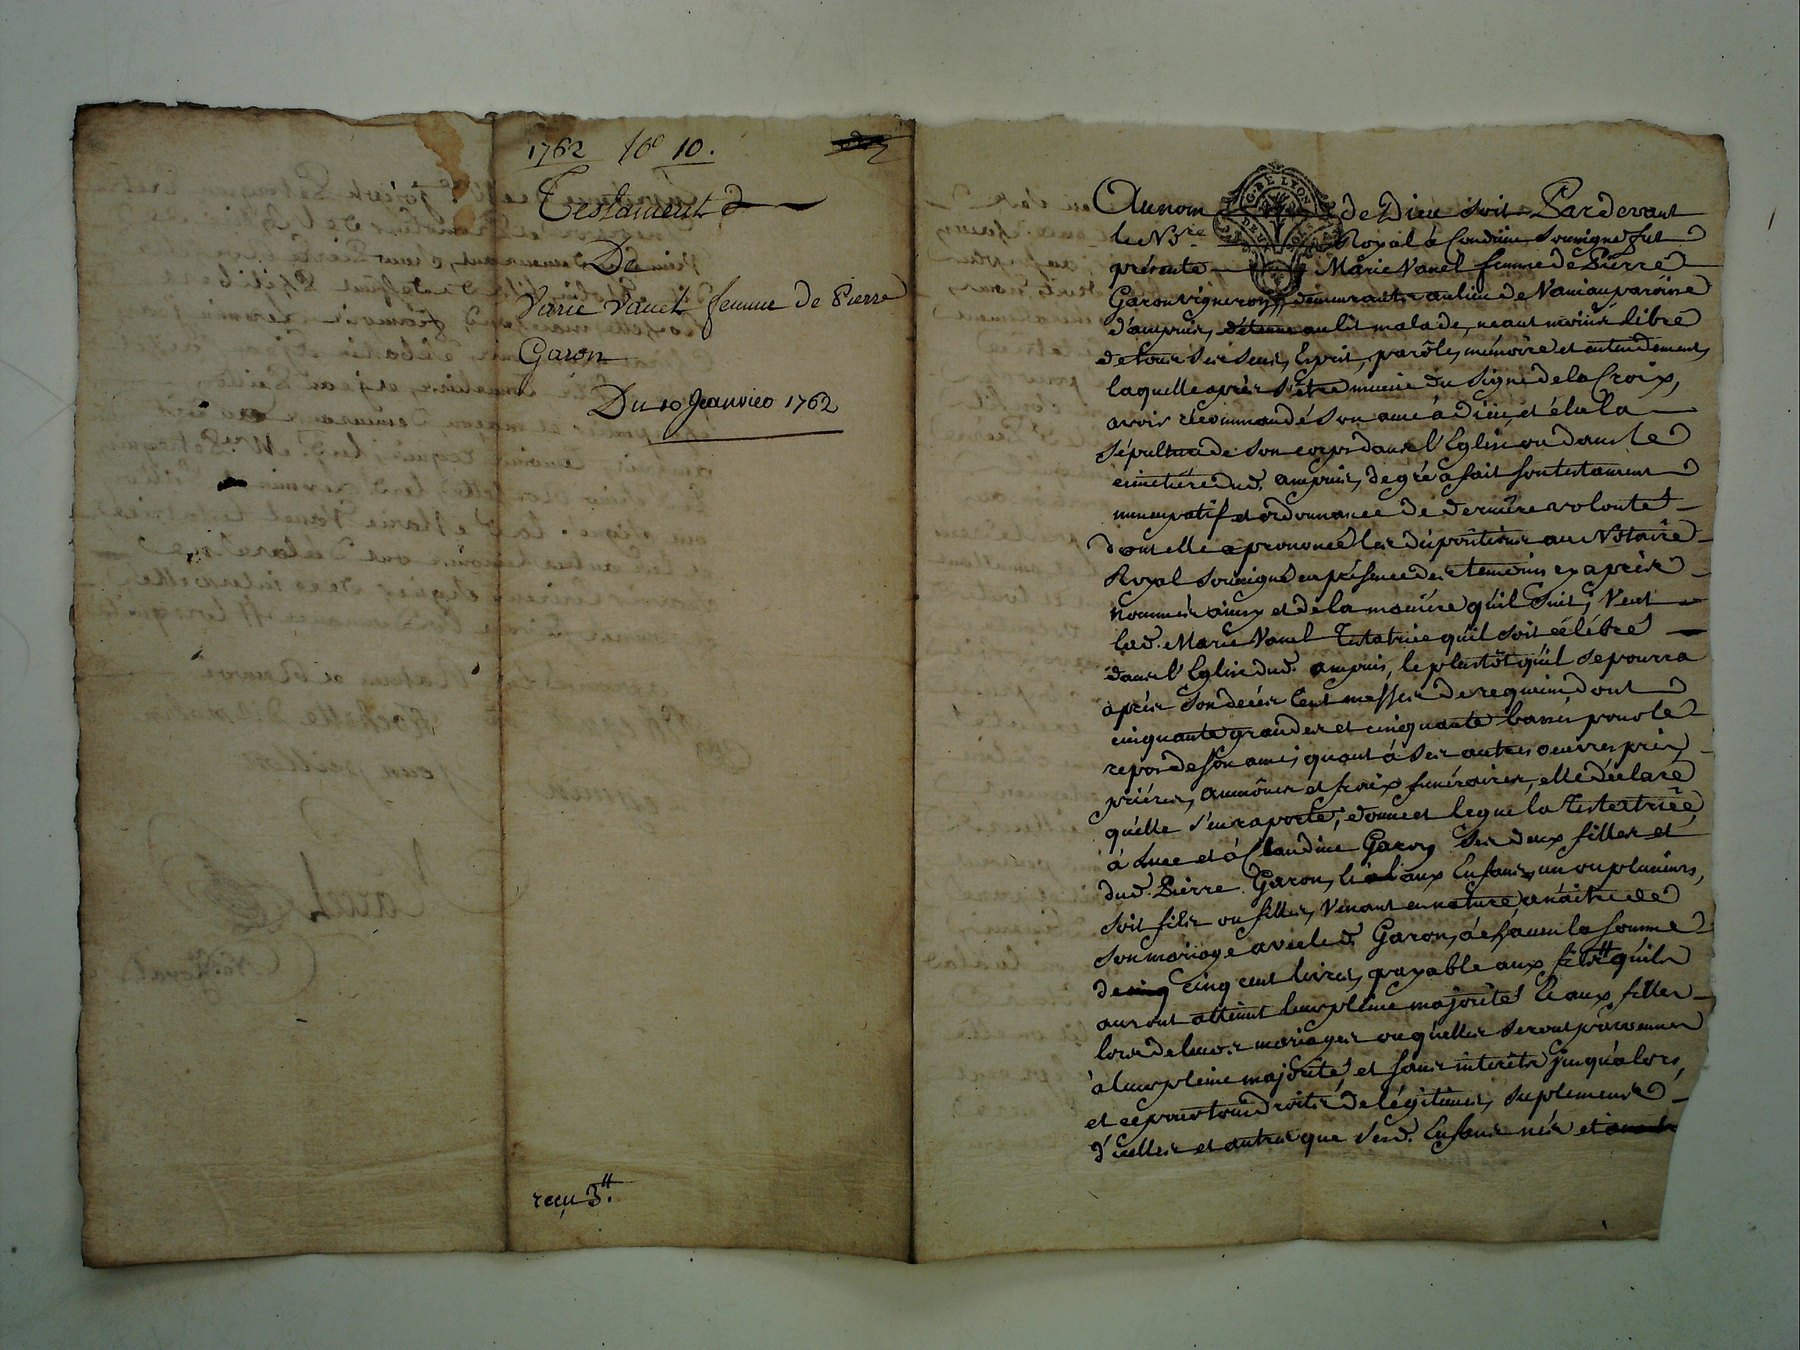 1762 No 10.
Testament
De
Marie Vanel femme de Pierre
Garon
Du 10 Janvier 1762
reçu 3tt.
Au nom de Dieu soit Par devant
le Nre Royal à Condrieu Soussigné fut
présente Marie Vanel femme de Pierre
Garon vigneron demeurante au lieu de paroisse
d'ampuis, détenue au lit malade, neantmoins libre
de tous ses sens, Esprit, parôle, mémoire et entendement,
laquelle après s'être munie du signe de la Croix,
avoir recommandé son ame à Dieu, et élu la
sépulture de son corps dans l'Eglise ou dans le
cimetière dud. ampuis, de gré a fait son testament
nuncupatif et ordonnance de dernière volonté
dont elle a prononcé les dispositions au Notaire
Royal soussigné en présence des temoins cy après
nommés ainsy et de la manière qu'il suit; Veut
lad. Marie Vanel Testatrice qu'il soit célébré
dans l'Eglise dud. ampuis, le plustôt qu'il se pourra
après son decès Cent messes de requiem dont
cinquante grandes et cinquante basses pour le
repos de son ame; quant à ses autres oeuvres pies,
prières, aumônes et fraix funéraires, elle déclare
qu'elle s'en raporte; donne et legue la Testatrice
à et à Claudine Garon ses deux filles et
dud. Pierre Garon, et aux Enfans un ou plusieurs,
soit fils ou filles, venant en nature, à naitre de
son mariage avec led. Garon, à chacun la somme
de cinq cent livres, payable aux fils qu'ils
auront atteint leur pleine majorité et aux filles
lors de leurs mariages ou qu'elles seront parvenues
à leur pleine majorité, et sans interêts jusqu'alors,
et ce pour tous droits de légitimes, suplements
d'icelles et autres que sesd. Enfans nés et